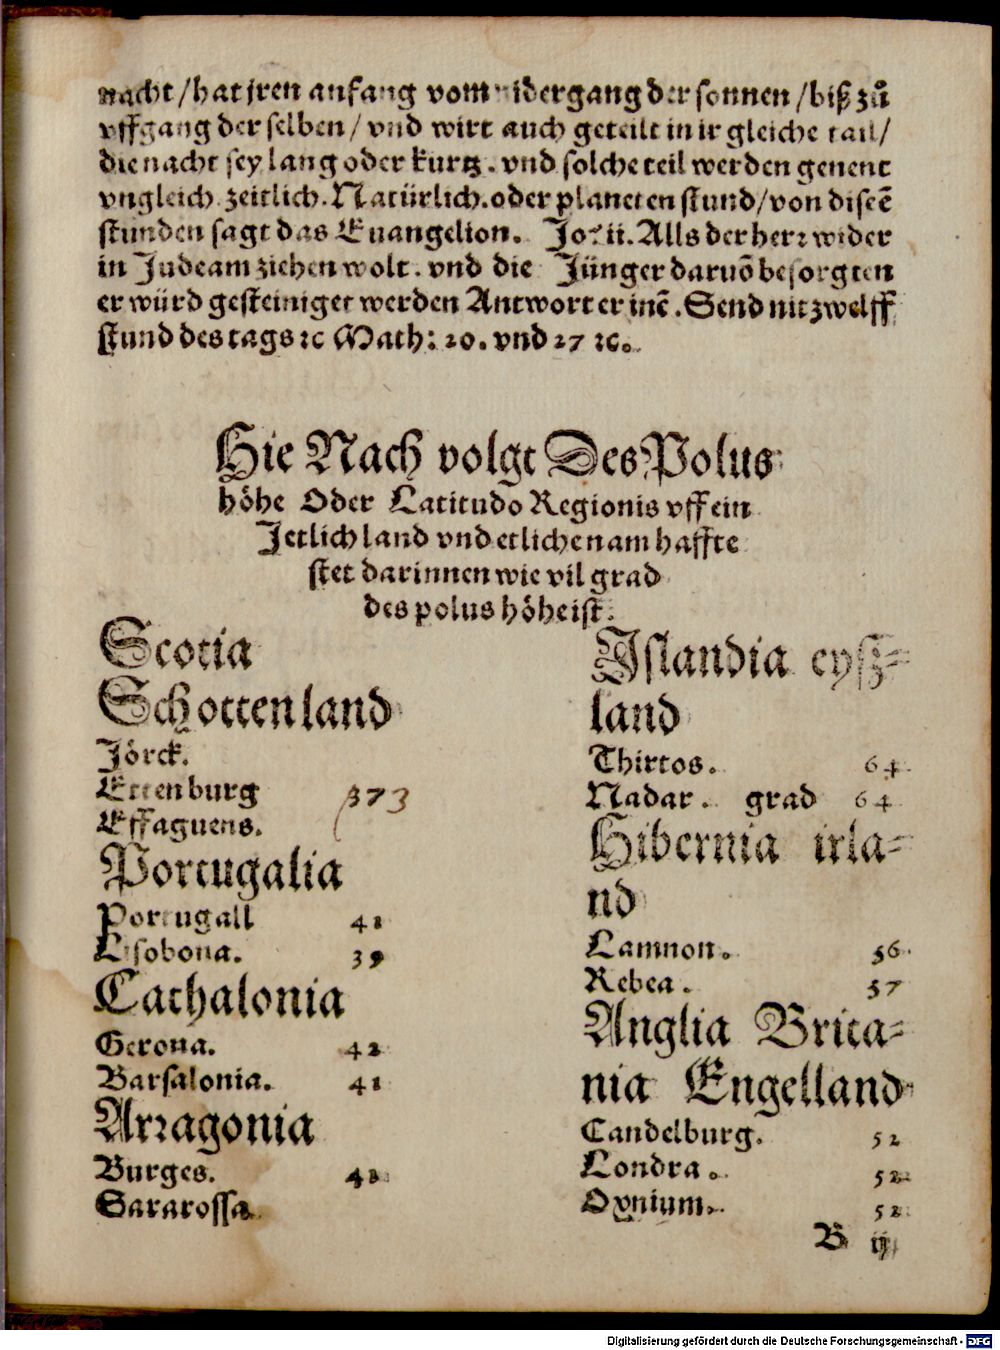 nacht/hat jren anfang vom nidergang der sonnen/biß zů
vffgang der selben/vnd wirt auch geteilt in ir gleiche tail/
die nacht sey lang oder kurtz. vnd solche teil werden genent
vngleich zeitlich. Natürlich. oder planeten stund/von disē
stunden sagt das Euangelion. Jo: ii. Alls der herꝛ wider
in Judeam ziehen wolt. vnd die Jünger daruō besorgten
er würd gesteiniget werden Antwort er inē. Send nit zwelff
stund des tags ⁊c Math: 20. vnd 27 ⁊c.
Hie Nach volgt Des Polus
höhe Oder Latitudo Regionis vff ein
Jetlich land vnd etliche namhaffte
stet darinnen wie vil grad
des polus höhe ist.
Scotia
Schottenland
Jörck.
Ettenburg 573
Effaguens.
Portugalia
Portugall 41
Lisobona. 39
Cathalonia
Gerona. 42
Barsalonia. 41
Arꝛagonia
Burges. 42
Sararossa.
Islandia eyß=
land
Thirtos. 64
Nadar. grad 64
Hibernia irla=
nd
Lamnon. 56
Rebea. 57
Anglia Brita=
nia Engelland
Candelburg. 52
Londra. 52
Oxnium. 52
B ij
Digitalisierung gefördert durch die Deutsche Forschungsgemeinschaft - DFG